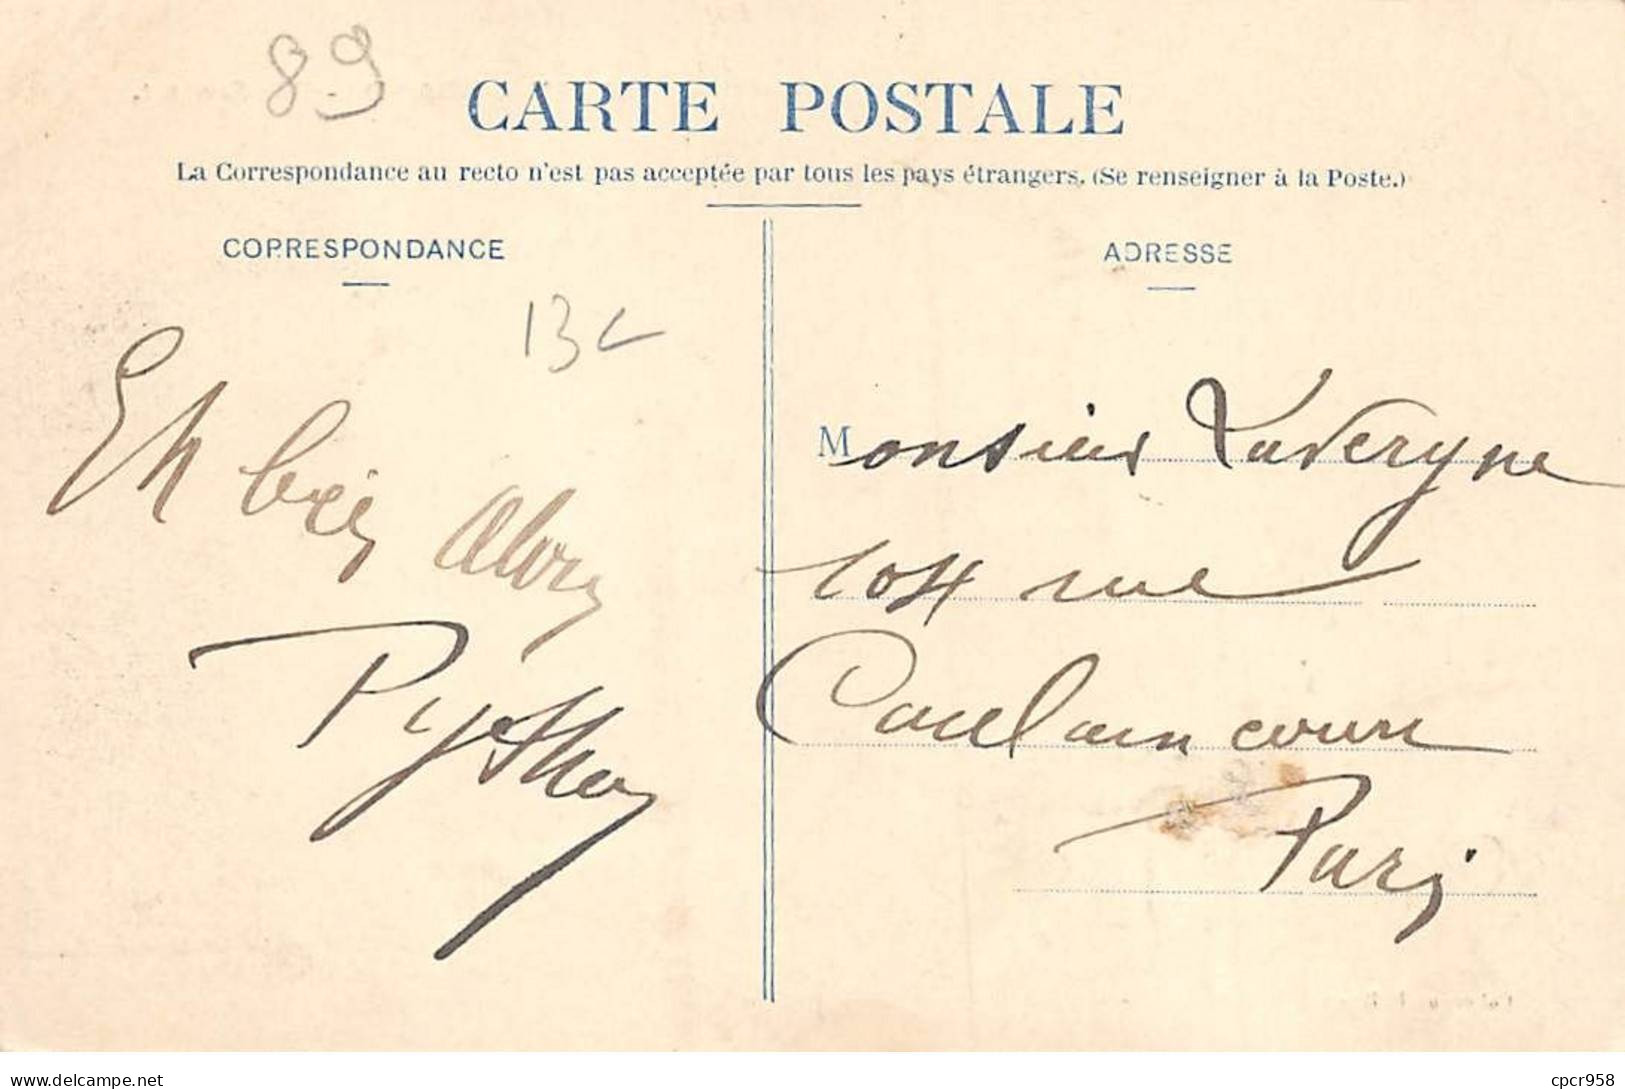 89
CARTE POSTALE
La Correspondance au recto n'est pas acceptée par tous les pays étrangers. (Se renseigner à la Poste.)
CORRESPONDANCE
13
Eh bien Alors
ADRESSE
Monsieur Lavergne
104 rue
Caulaincourt
Paris
delcampe.net
cpcr958